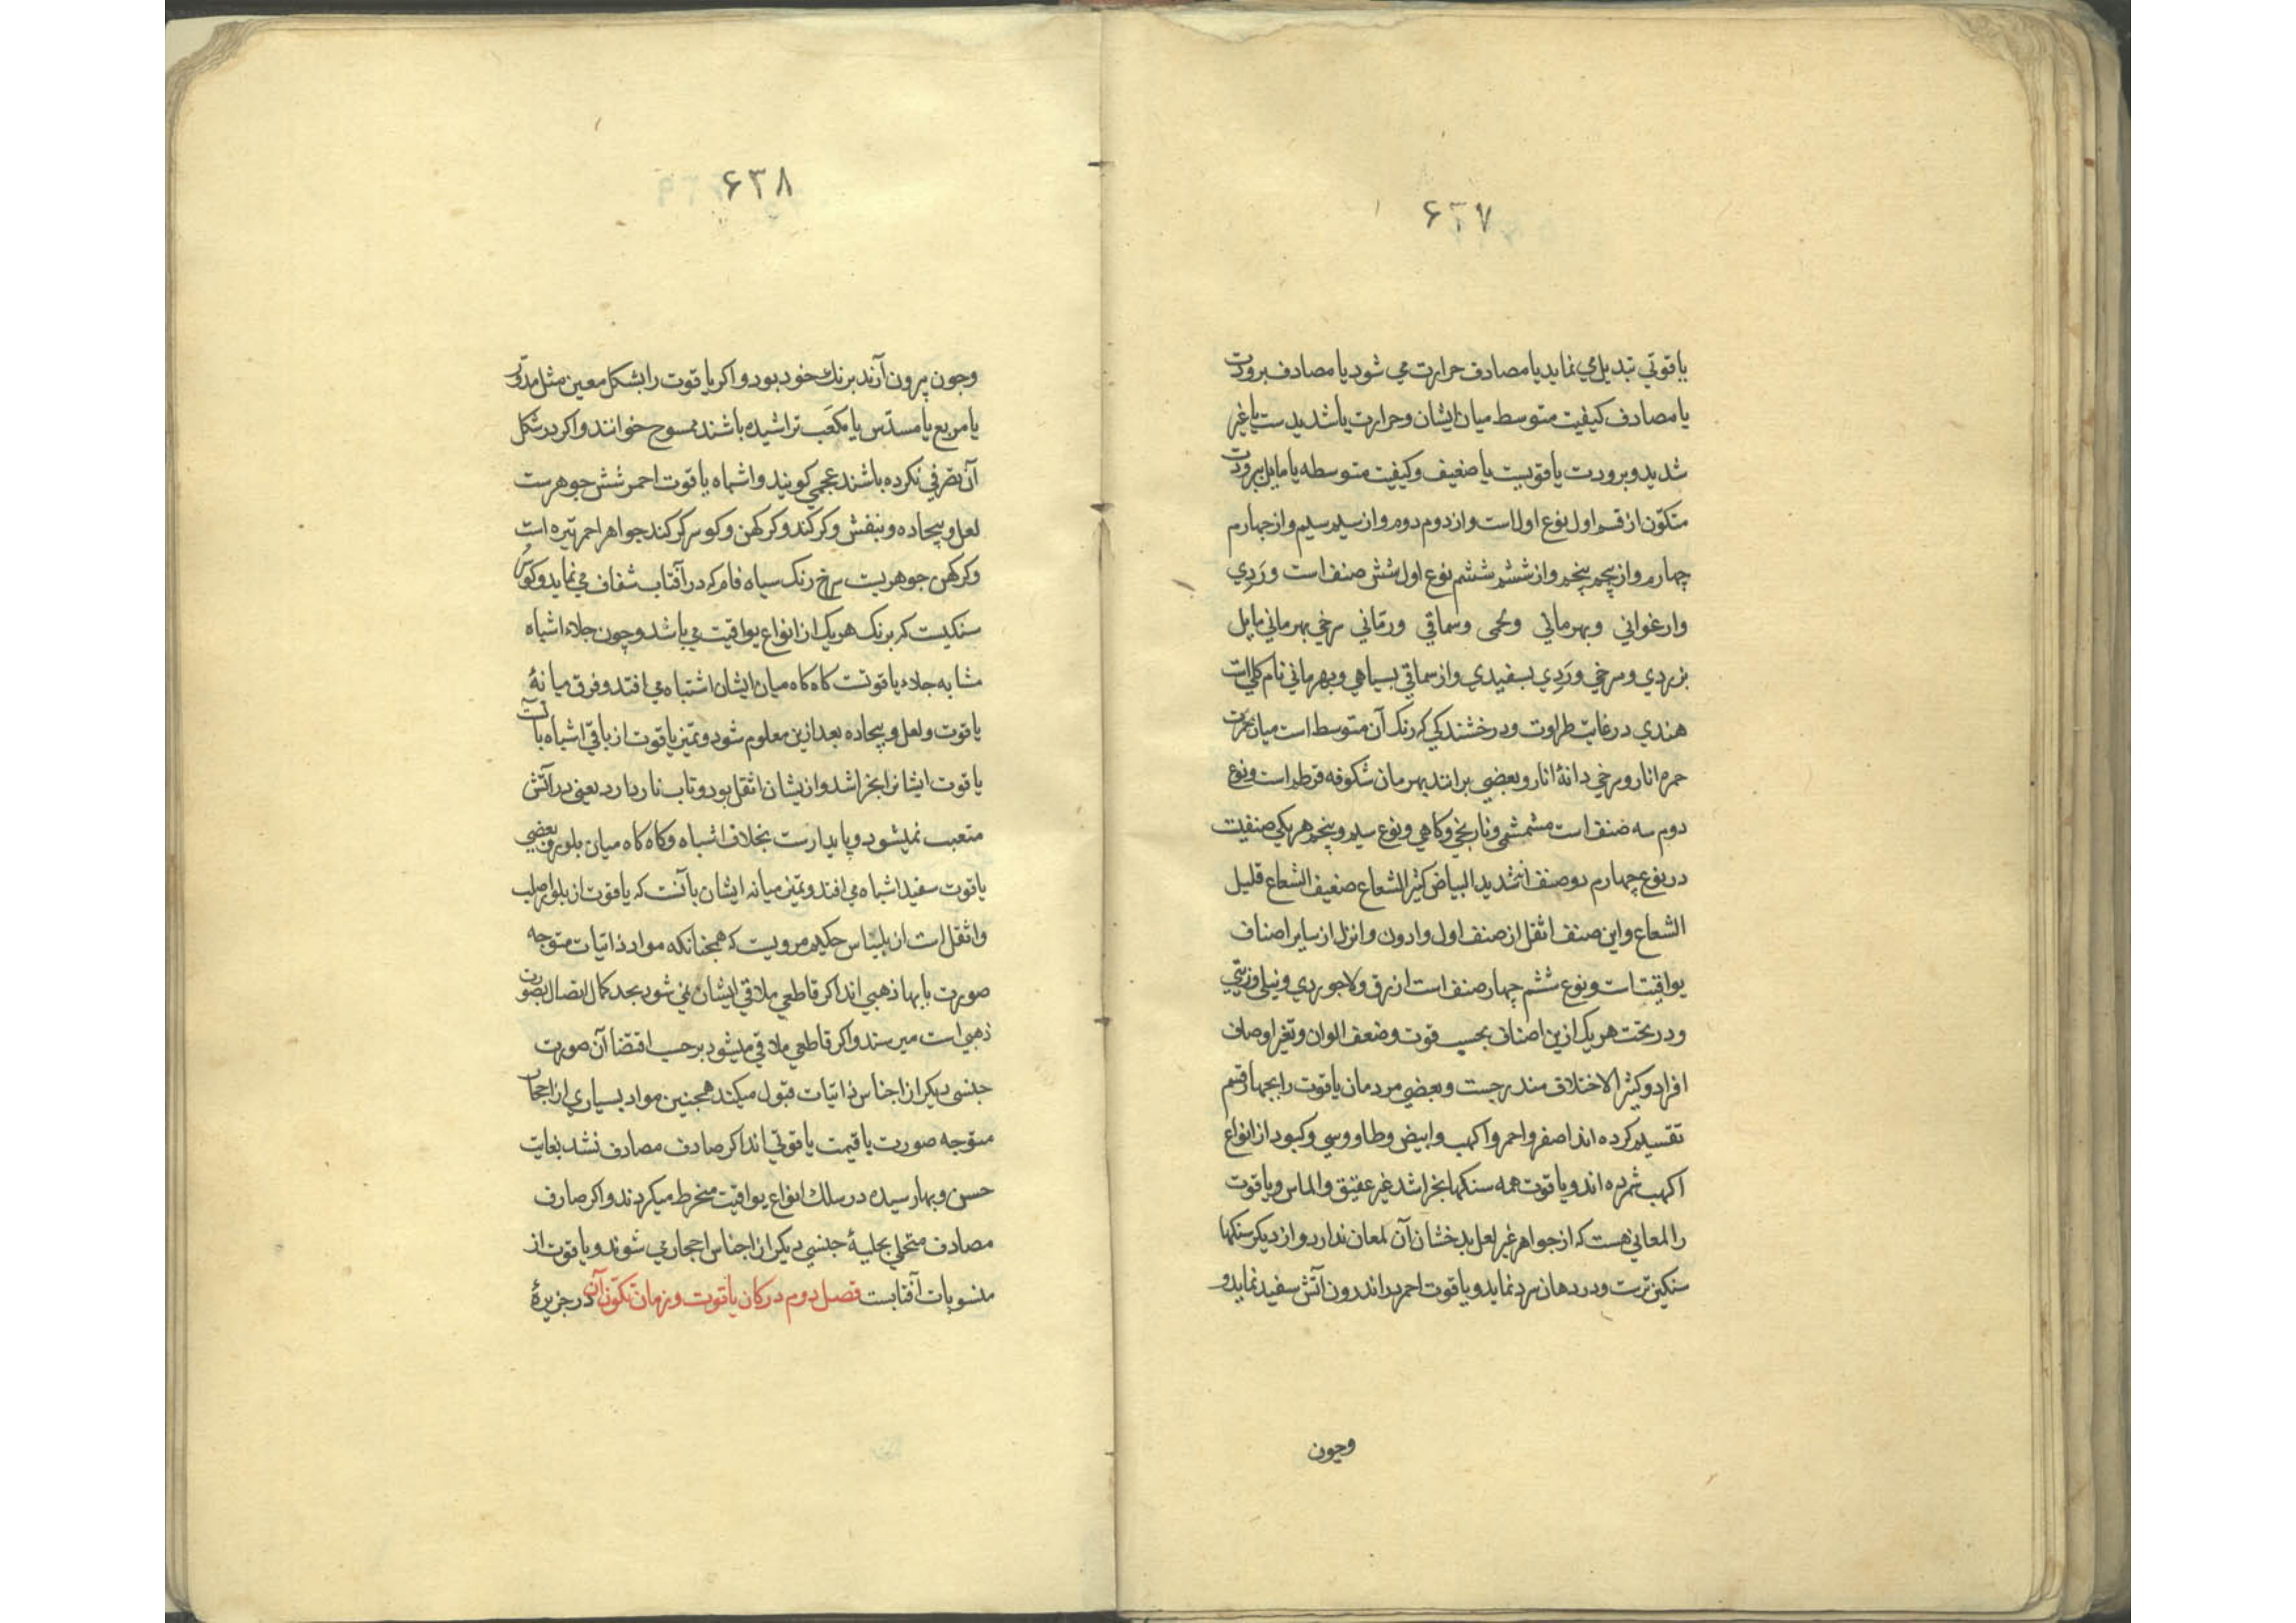 ۶۳۷
یاقوتی تبدیل می نماید یا مصادف حرارت می شود یا مصادف برودت
یا مصادف کیفیت متوسط میان ایشان و حرارت یا شدیدست یا غیر
شدید و برودت یا قویست یا ضعیف و کیفیت متوسطه یا مایل ببرودت
متکون از قسم اول نوع اول است و از دوم دوم و از سیم سیم و از چهارم
چهارم و از پنجم پنجم و از ششم ششم نوع اول شش صنف است وَردِی
وارغوانی وبهرمانی ولحمی وسماقی ورمّانی سرخی بهرمانی مایل
بزردی و سرخی وَردِی بسفیدی و از سماقی بسیاهی و بهرمانی نام
هندی در غایت طراوت و درخشندکی که رنک آن متوسط است میان
حمره انار و سرخی دانهٔ انار و بعضی برانند بهرمان شکوفه قرطم است و نوع
دوم سه صنف است مشمشی و نارنجی و کاهی و نوع سیم و پنجم هر یکی صنفیست
در نوع چهارم دو صنف شدید البیاض کثیر الشعاع ضعیف الشعاع قلیل
الشعاع و این صنف اثقل از صنف اول وادون وانزل از سایر اصناف
یواقیت است و نوع ششم چهار صنف است ازرق و لاجوردی و نیلی و زیتی
و در تحت هر یک ازین اصناف بحسب قوت و ضعف الوان و تغیر اوصاف
افراد و کثیر الاختلاف مندرجست و بعضی مردمان یاقوت را بچهار قسم
تقسیم کرده اند اصفر واحمر واکهب وابیض وطاووسی وکبود از انواع
اکهب شمرده اند و یاقوت همه سنکها بخراشد غیر عقیق والماس ویاقوت
را لمعانی هست که از جواهر غیر لعل بدخشان آن لمعان ندارد و از دیکر سنکها
سنکین ترست و در دهان سرد نماید و یاقوت احمر در اندرون آتش سفید نماید و
وچون
۶۳۸
وچون بیرون آرند برنک خود بود و اکر یاقوت را بشکل معین مثل مدوّر
یا مربع یا مسدّس یا مکعَب تراشیده باشند ممسوح خوانند و اکر در شکل
آن تصرفی نکرده باشند عجمی کویند و اشباه یاقوت احمر شش جوهرست
لعل و بیجاده و بنفش و کرکند و کرکهن و کوسر کرکند جواهر احمر تیره است
و کرکهن جوهریست سرخ رنک سیاه فام که در آفتاب شفاف می نماید و کوسر
سنکیست که برنک هر یک از انواع یواقیت می باشد و چون جلاء اشباه
مشابه جلاء یاقوتست کاه کاه میان ایشان اشتباه می افتد و فرق میانهٔ
یاقوت و لعل و بیجاده بعد ازین معلوم شود و تمیز یاقوت از باقی اشباه بآنست
یاقوت ایشانرا بخراشد و ازیشان اثقل بود و تاب نار دارد یعنی در آتش
متعیب نمیشود و پایدارست بخلاف اشباه و کاه کاه میان بلور و بعضی
یاقوت سفید اشباه می افتد و تمیز میانه ایشان بآنست که یاقوت از بلور اصلب
واثقل است از بلیناس حکیم مرویست که همچنانکه مواد ذاتیات متوجه
صورت بابها ذهبی اند اکر قاطعی ملاقی ایشان نمی شود بحد کمال اتصال بصورت
ذهبی است میرسند و اکر قاطعی ملاقی میشود بر حسب اقتضا آن صورت
جنسی دیکر از اجناس ذاتیات قبول میکند همچنین مواد بسیاری از احجار
متوجه صورت با قیمت یاقوتی اند اکر صادف مصادف نشد بغایت
حسن و بها رسیده در سلک انواع یواقیت منخرط میکردند و اکر صارف
مصادف متحلی بحلیهٔ جنسی دیکر از اجناس احجار می شوند و یاقوت از
منسوبات آفتابست فصل دوم در کان یاقوت و زمان تکوّن آن در جزیرهٔ